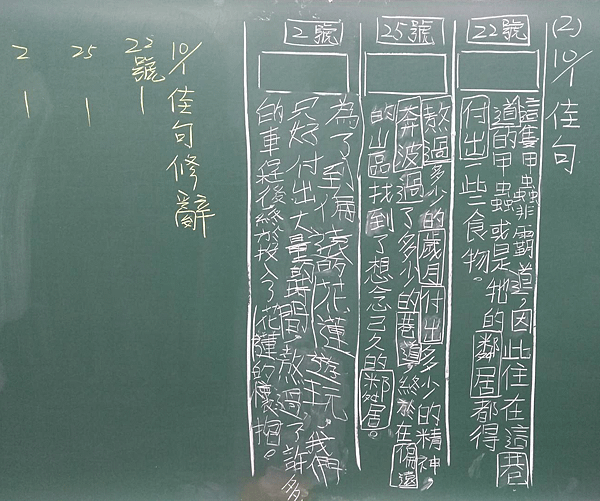 (2) 10/1 佳句
22號
這隻甲蟲非常霸道，因此住在這巷
道的甲蟲或是牠的鄰居都得
付出一些食物。
25號
熬過多少的歲月付出多少的精神，
奔波過了多少的巷道，終於在偏遠
的山區找到了想念已久的鄰居。
2號
為了到偏遠的花蓮遊玩。我們
只好付出大量時間，熬過了許多
的車程後終於投入了花蓮的懷抱。
10/1 佳句修辭
22號 1
25 1
2 1